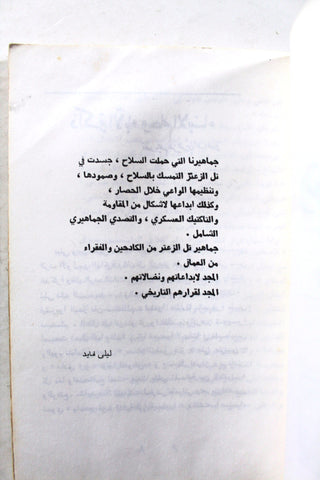 جماهيرنا التي حملت السلاح ، جسدت في
تل الزعتر التمسك بالسلاح ، وصمودها ،
وتنظيمها الواعي خلال الحصار ،
وكذلك ابداعها لاشكال من المقاومة
والتاكتيك العسكري ، والتصدي الجماهيري
الشامل .
جماهير تل الزعتر من الكادحين والفقراء
من العمال .
المجد لابداعاتهم ونضالاتهم .
المجد لقرارهم التاريخي .
ليلى قايد